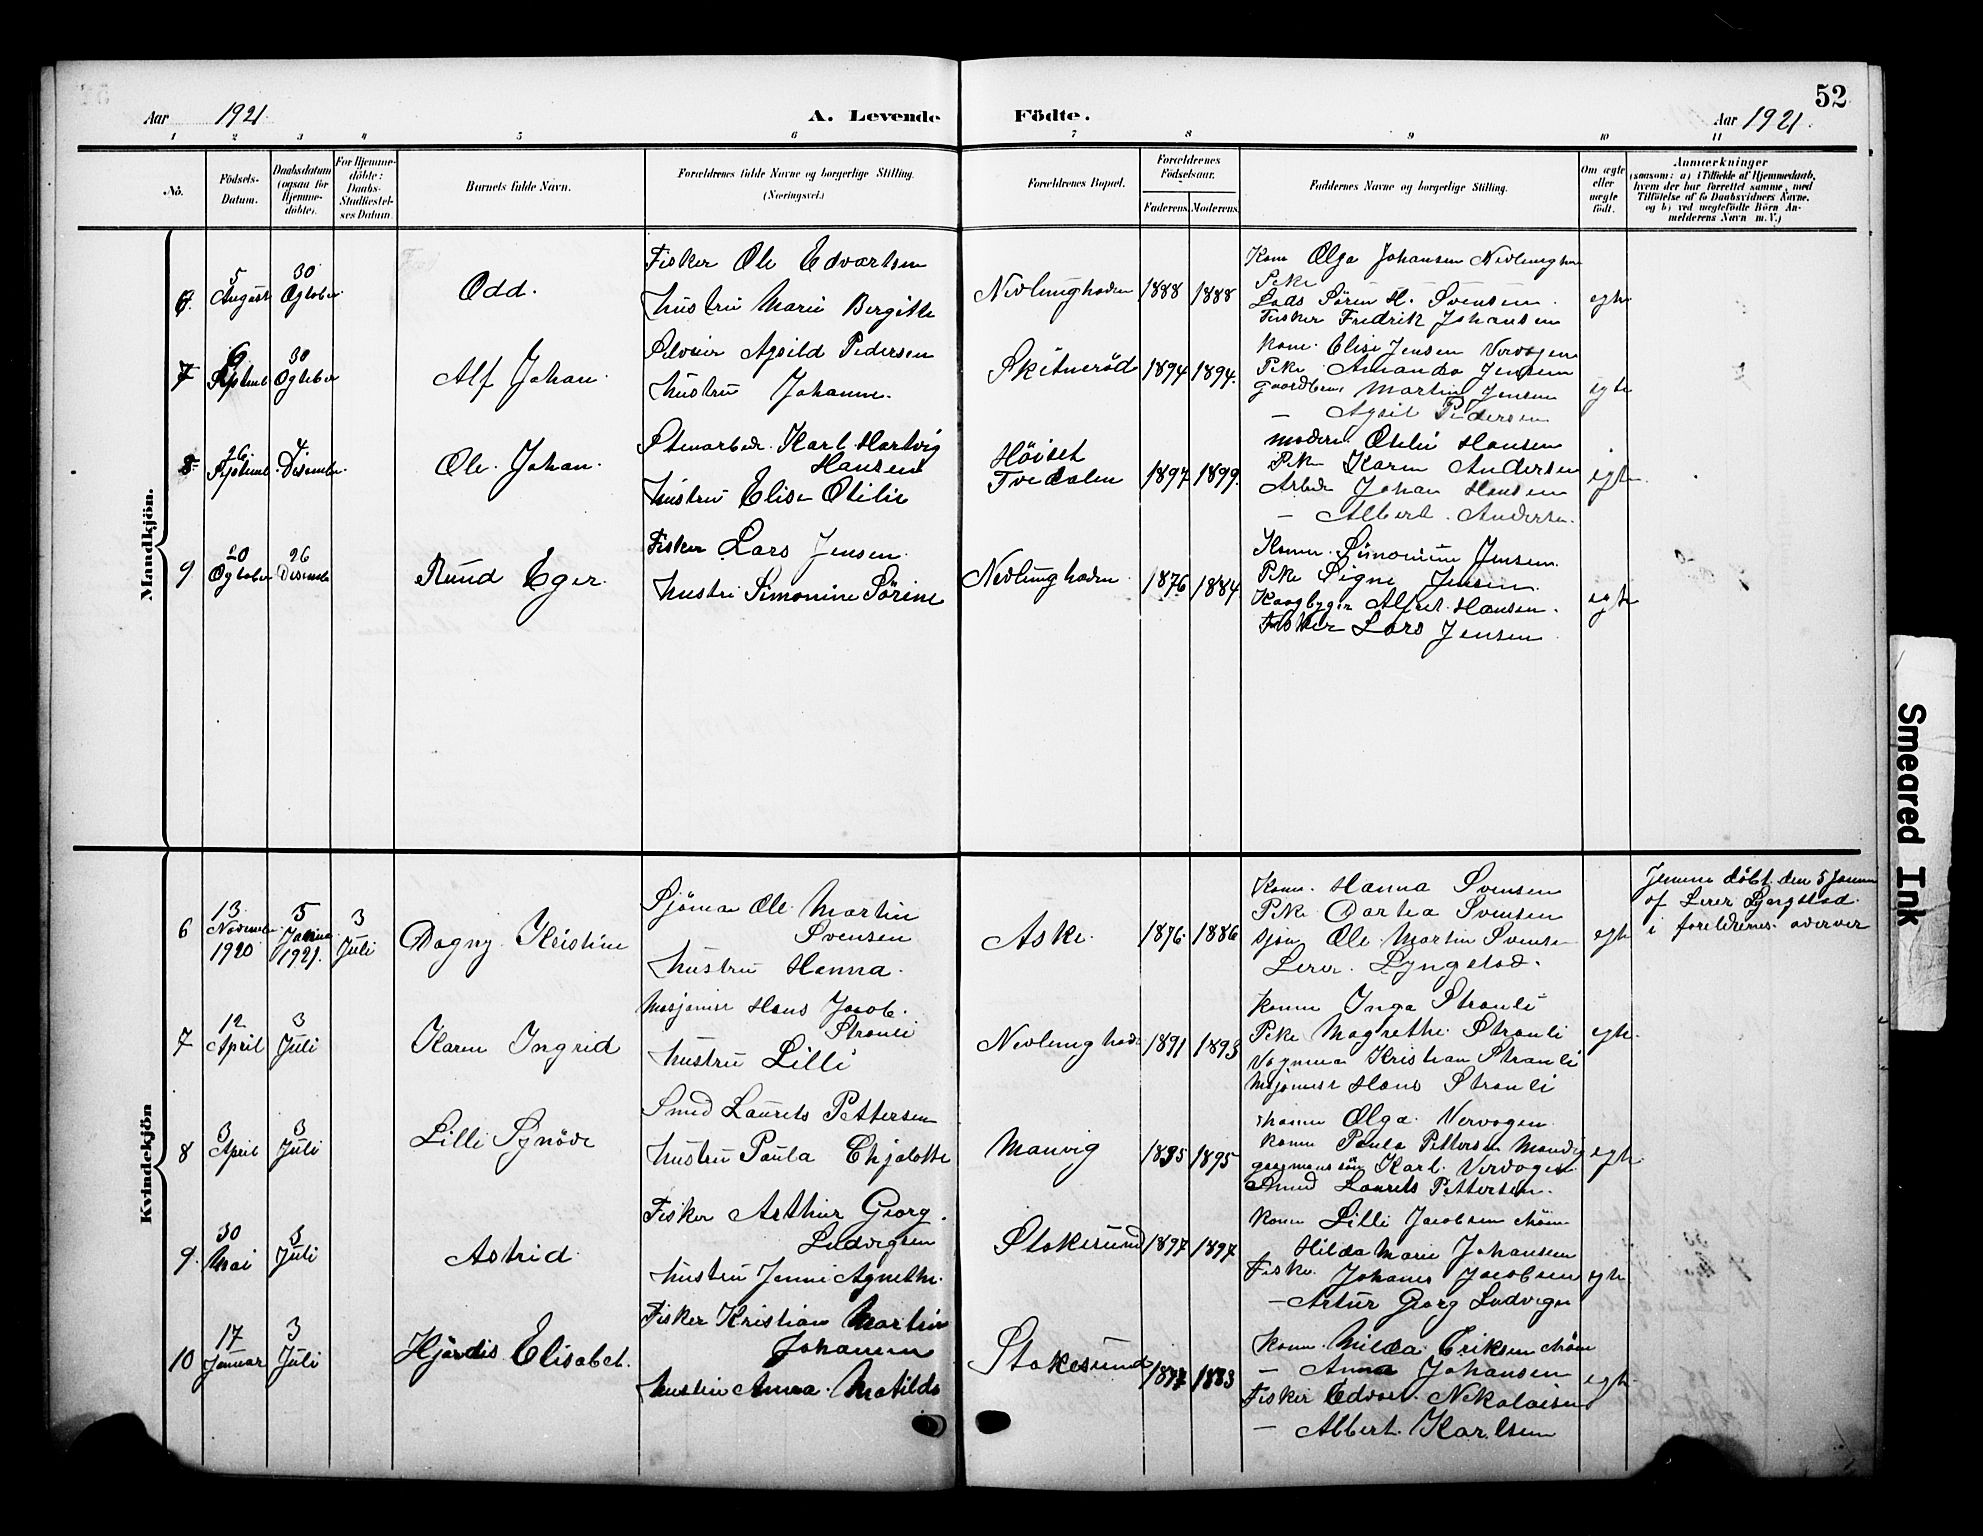 52
Aar 1921. A. Levende Födte. Aar 1921.
1 2 3 4 5 6 7 8 9 10 11
No.
Födsels-
Datum.
Daabsdatum
(ogsaa for
Hjemme-
döbte).
For Hjemme-
döbte:
Daabs-
Stadfæstel-
ses Datum.
Barnets fulde Navn.
Forældrenes fulde Navne og borgerlige Stilling.
(Næringsvei.)
Forældrenes Bopæl.
Forældrenes
Födselsaar.
Faderens. Moderens.
Faddernes Navne og borgerlige Stilling.
Om ægte
eller
uægte
født.
Anmærkninger
(saasom: a) i Tilfælde af Hjemmedaab,
hvem der har forrettet samme, med
Tilföielse af to Daabsvidners Navne,
og b) ved uægtefödte Börn An-
melderens Navn m. V.)
Mandkjön.
6. 5 August 30 Ogtober Odd.
Fisker Ole Edvartsen
hustru Marie Bergitte
Nevlunghaven 1888 1888
Kone Olga Johansen Nevlungha
Pike
Lods Sören H. Svensen.
Fisker Fredrik Johansen
egte
7 6 Septemb 30 Ogtober Alf Johan.
Pedersen
hustru Johanne.
1894 1894.
Kone. Elise Jensen Vervogen
Pike Amanda Jensen
Martin Jensen
— Pedersen
egte
8 26 Septemb 4 Desember. Ole Johan.
Stenarbeid. Karl Hartvig
Hansen
hustru Elise Otilie
Høiset
Tvedalen 1897 1899.
modern Otelie Hansen
Pike Karen Andersen
Arbeid Johan Hansen
— Albert. Andersen.
egte
9 20 Ogtober 26 Desemb Ruud Eger.
Fisker Lars Jensen.
hustru Simonine Sörine
Nevlunghaven 1876 1884
Kone. Simonine Jensen
Pike Signe Jensen.
Alfred Hansen.
Fisker Lars Jensen
egte
Kvindekjön
6 13 Novembe 1920 5 Janua 1921. 3 Juli Dagny Kristine
Sjöman Ole Martin
Svensen
hustru Hanna.
Aske. 1876. 1886
Kone. Hanna Svensen
Pike Dortea Svensen
Sjöm Ole Martin Svense
Lerer. Lyngstad.
egte
Jemme döbt den 5 Janua
af Lerer Lyngstad.
i foreldrenes overver
7 12 April 3 Juli Karen Ingrid
Hans Jacob.
Stranli
hustru Lilli
Nevlunghav 1891 1893
Kone Inga Stranli
Pike Magrethe Stranli
Kristian Stranli
Hans Stranli
egte.
8 3 April 3 Juli Lilli Synöve
Smed Laurits Pettersen
hustru Paula
Manvig 1895 1895
Olga Vervogen
Kone Paula Pettersen
Karl. Vervogen
Smed Laurits Pettersen.
egte.
9. 30 Mai 3 Juli Astrid
Fisker Arthur Georg.
Ludvigsen
hustru Jenni Agnethe.
Stokesund 1897 1897
Kone Lilli Jacobsen
Hilda Marie Johansen
Fiske. Johanes Jacobsen
— Artur Georg Ludvigse
egte
10 17 Januar 3 Juli Hjördis Elisabet.
Fisker Kristian Martin
Johansen
hustru Anna Matilde
Stokesund 1883
Kone Milda Eriksen
— Anna Johansen
Fisker Edvart. Nikolaisen
— Albert Karlsen
egte.
Smeared Ink